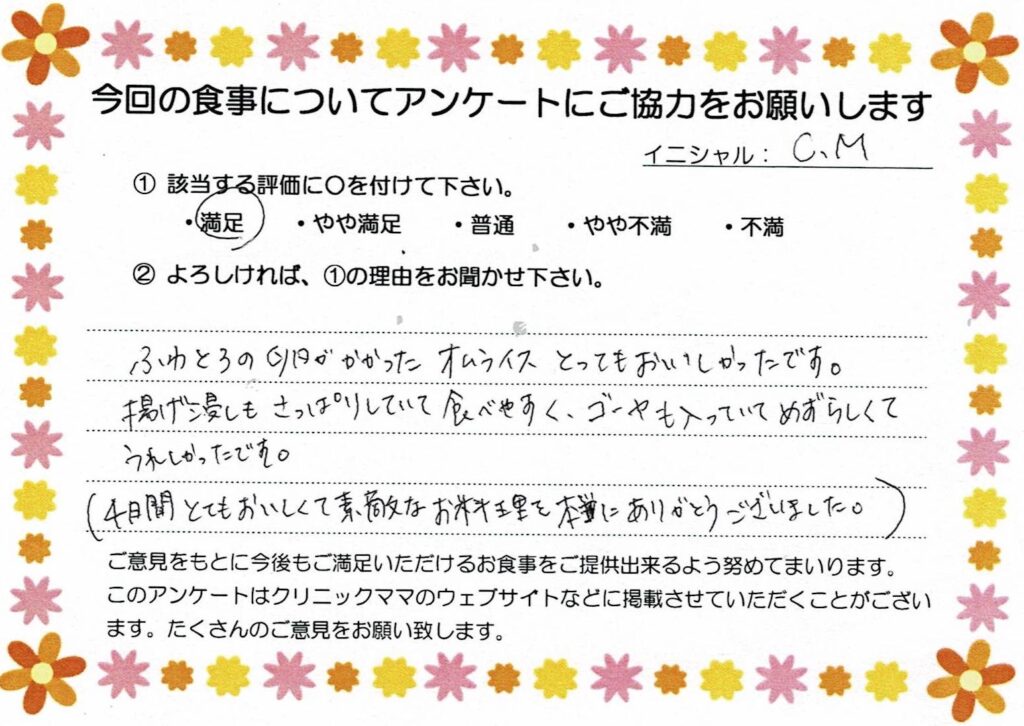 今回の食事についてアンケートにご協力をお願いします
イニシャル： C、M
① 該当する評価に〇を付けて下さい。
・満足 ・やや満足 ・普通 ・やや不満 ・不満
② よろしければ、①の理由をお聞かせ下さい。
ふわとろの卵がかかった オムライス とってもおいしかったです。
揚げ浸しも さっぱりしていて 食べやすく、ゴーヤも入っていて めずらしくて
うれしかったです。
(4日間 とてもおいしくて 素敵な お料理を 本当に ありがとうございました。)
ご意見をもとに今後もご満足いただけるお食事をご提供出来るよう努めてまいります。
このアンケートはクリニックママのウェブサイトなどに掲載させていただくことがござい
ます。たくさんのご意見をお願い致します。